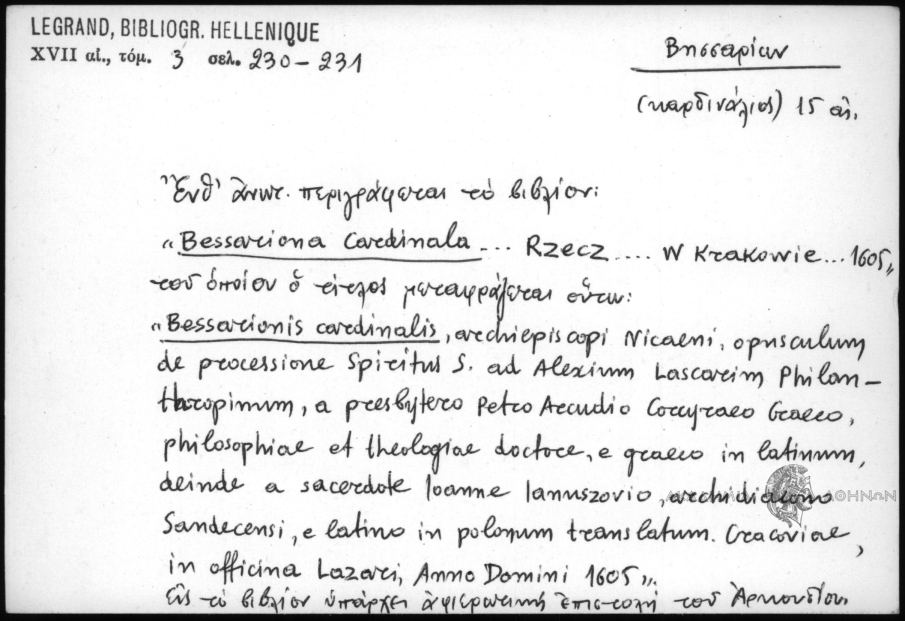 LEGRAND, BIBLIOGR. HELLENIQUE
XVII αἰ., τόμ. 3 σελ. 230-231
Βησσαρίων
(καρδινάλιος) 15 αἰ.
Ἔνθ' ἄνωτ. περιγράφεται τὸ βιβλίον:
"Bessariona Cardinala ... Rzecz .... W Krakowie ... 1605",
τοῦ ὁποίου ὁ τίτλος μεταφράζεται οὕτω:
"Bessarionis cardinalis, archiepiscopi Nicaeni, opusculum
de processione Spiritus S. ad Alexium Lascarim Philan-
thropinum, a presbytero Petro Arcudio Corcyraeo Graeco,
philosophiae et theologiae doctore, e graeco in latinum,
deinde a sacerdote Ioanne Ianuszovio, archidiacono
ΑΘΗΝΩΝ
Sandecensi, e latino in polonum translatum. Cracoviae,
in officina Lazari, Anno Domini 1605".
Εἰς τὸ βιβλίον ὑπάρχει ἀφιερωτικὴ ἐπιστολὴ τοῦ Ἀρκουδίου